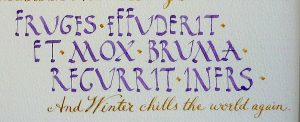 FRUGES·EFFUDERIT·
ET·MOX·BRUMA·
RECURRIT·INERS·
And Winter chills the world again.